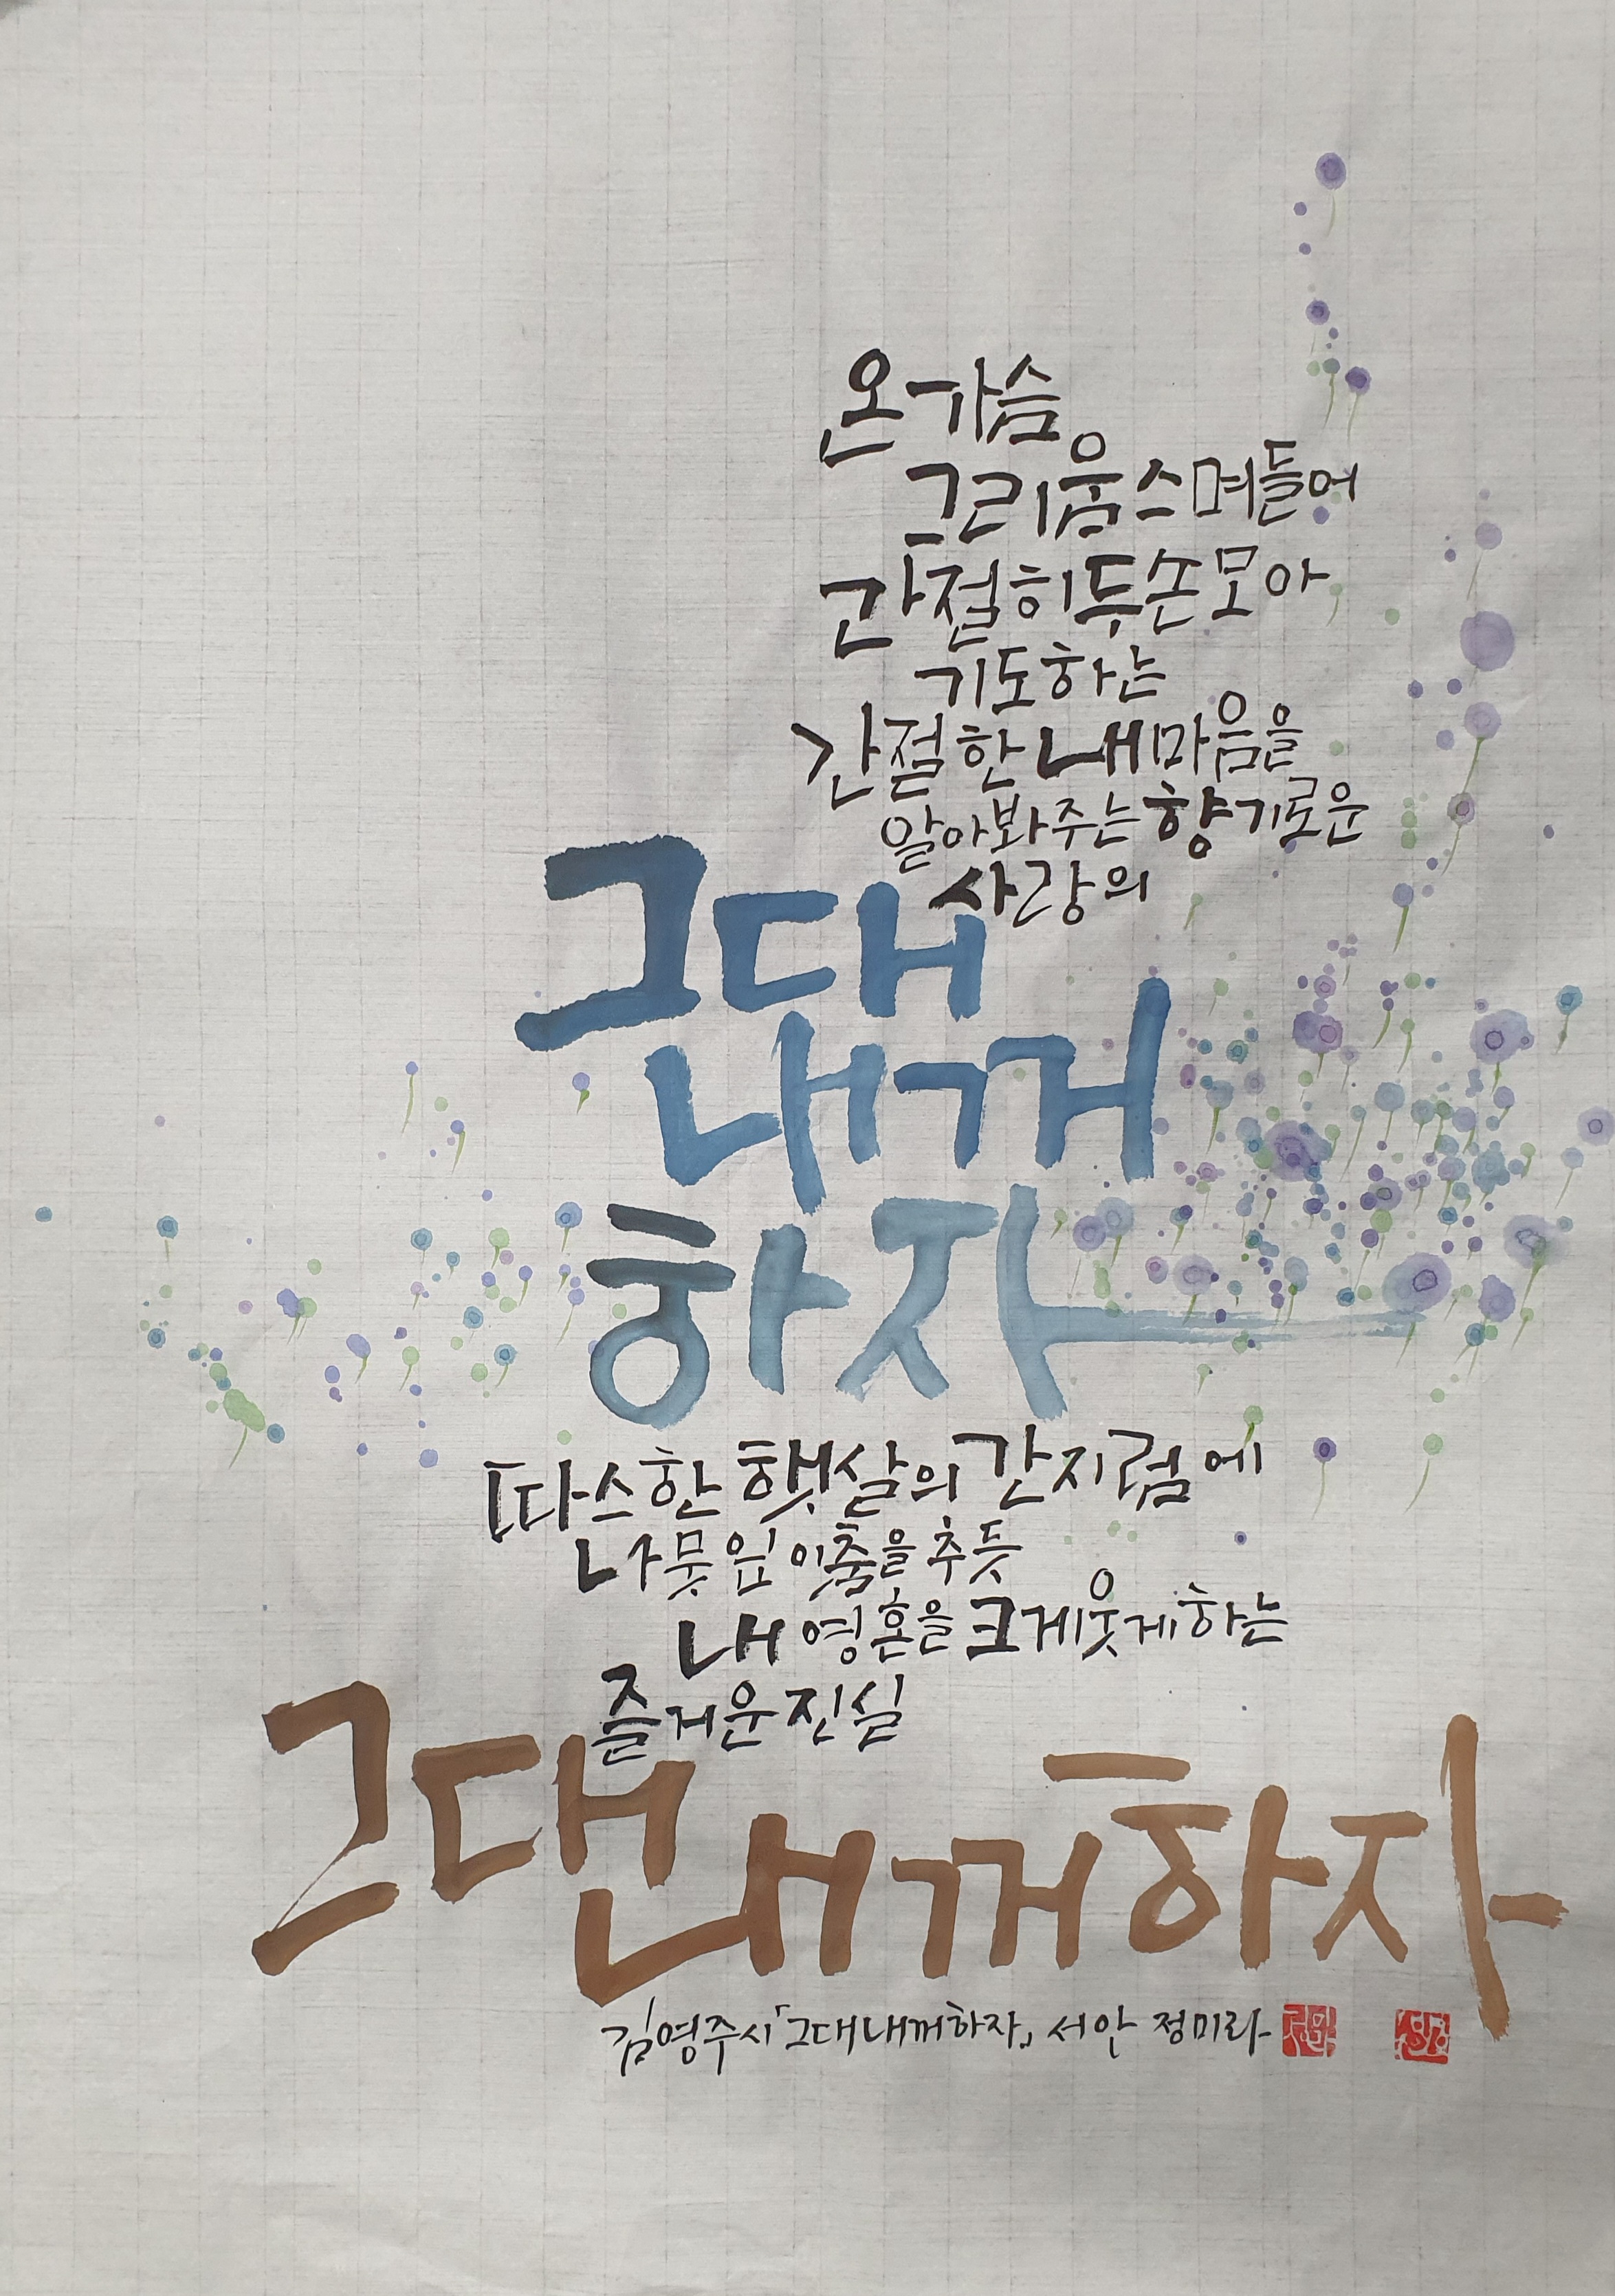 온가슴
그리움스며들어
간절히두손모아
기도하는
간절한내마음을
알아봐주는향기로운
사랑의
그대
내꺼
하자
따스한햇살의간지럼에
나뭇잎이춤을추듯
내영혼을크게웃게하는
즐거운진실
그대내꺼하자
김영주시「그대내꺼하자」 서안 정미라